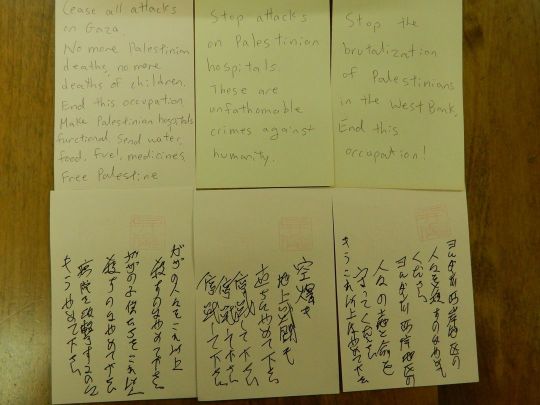 Cease all attacks
on Gaza.
No more Palestinian
deaths, no more
deaths of children.
End this occupation.
Make Palestinian hospitals
functional. Send water,
food, fuel, medicines.
Free Palestine
Stop attacks
on Palestinian
hospitals.
These are
unfathomable
crimes against
humanity.
Stop the
brutalization
of Palestinians
in the West Bank.
End this
occupation!
ガザの人々をこれ以上
殺すのはやめて下さい
ガザの子供たちをこれ以上
殺すのはやめて下さい
病院を攻撃するのは
もうやめて下さい
空爆も
地上戦闘も
直ちにやめて下さい
停戦して下さい
停戦して下さい
停戦して下さい
ヨルダン川西岸地区の
人々を殺すのはやめて
ください
ヨルダン川西岸地区の
人々の土地と命を
守ってください
もうこれ以上はやめて下さい